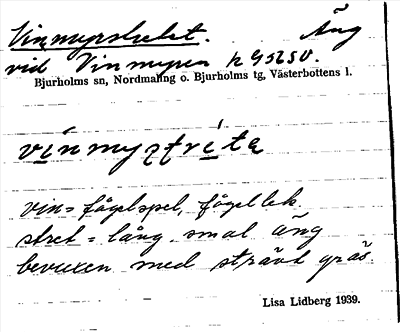 Vinmyrstretet. Äng
vid Vinmyren
Bjurholms sn, Nordmaling o. Bjurholms tg, Västerbottens l.
vin = fågelspel, fågellek
stret = lång, smal äng
bevuxen med strävt gräs.
Lisa Lidberg 1939.